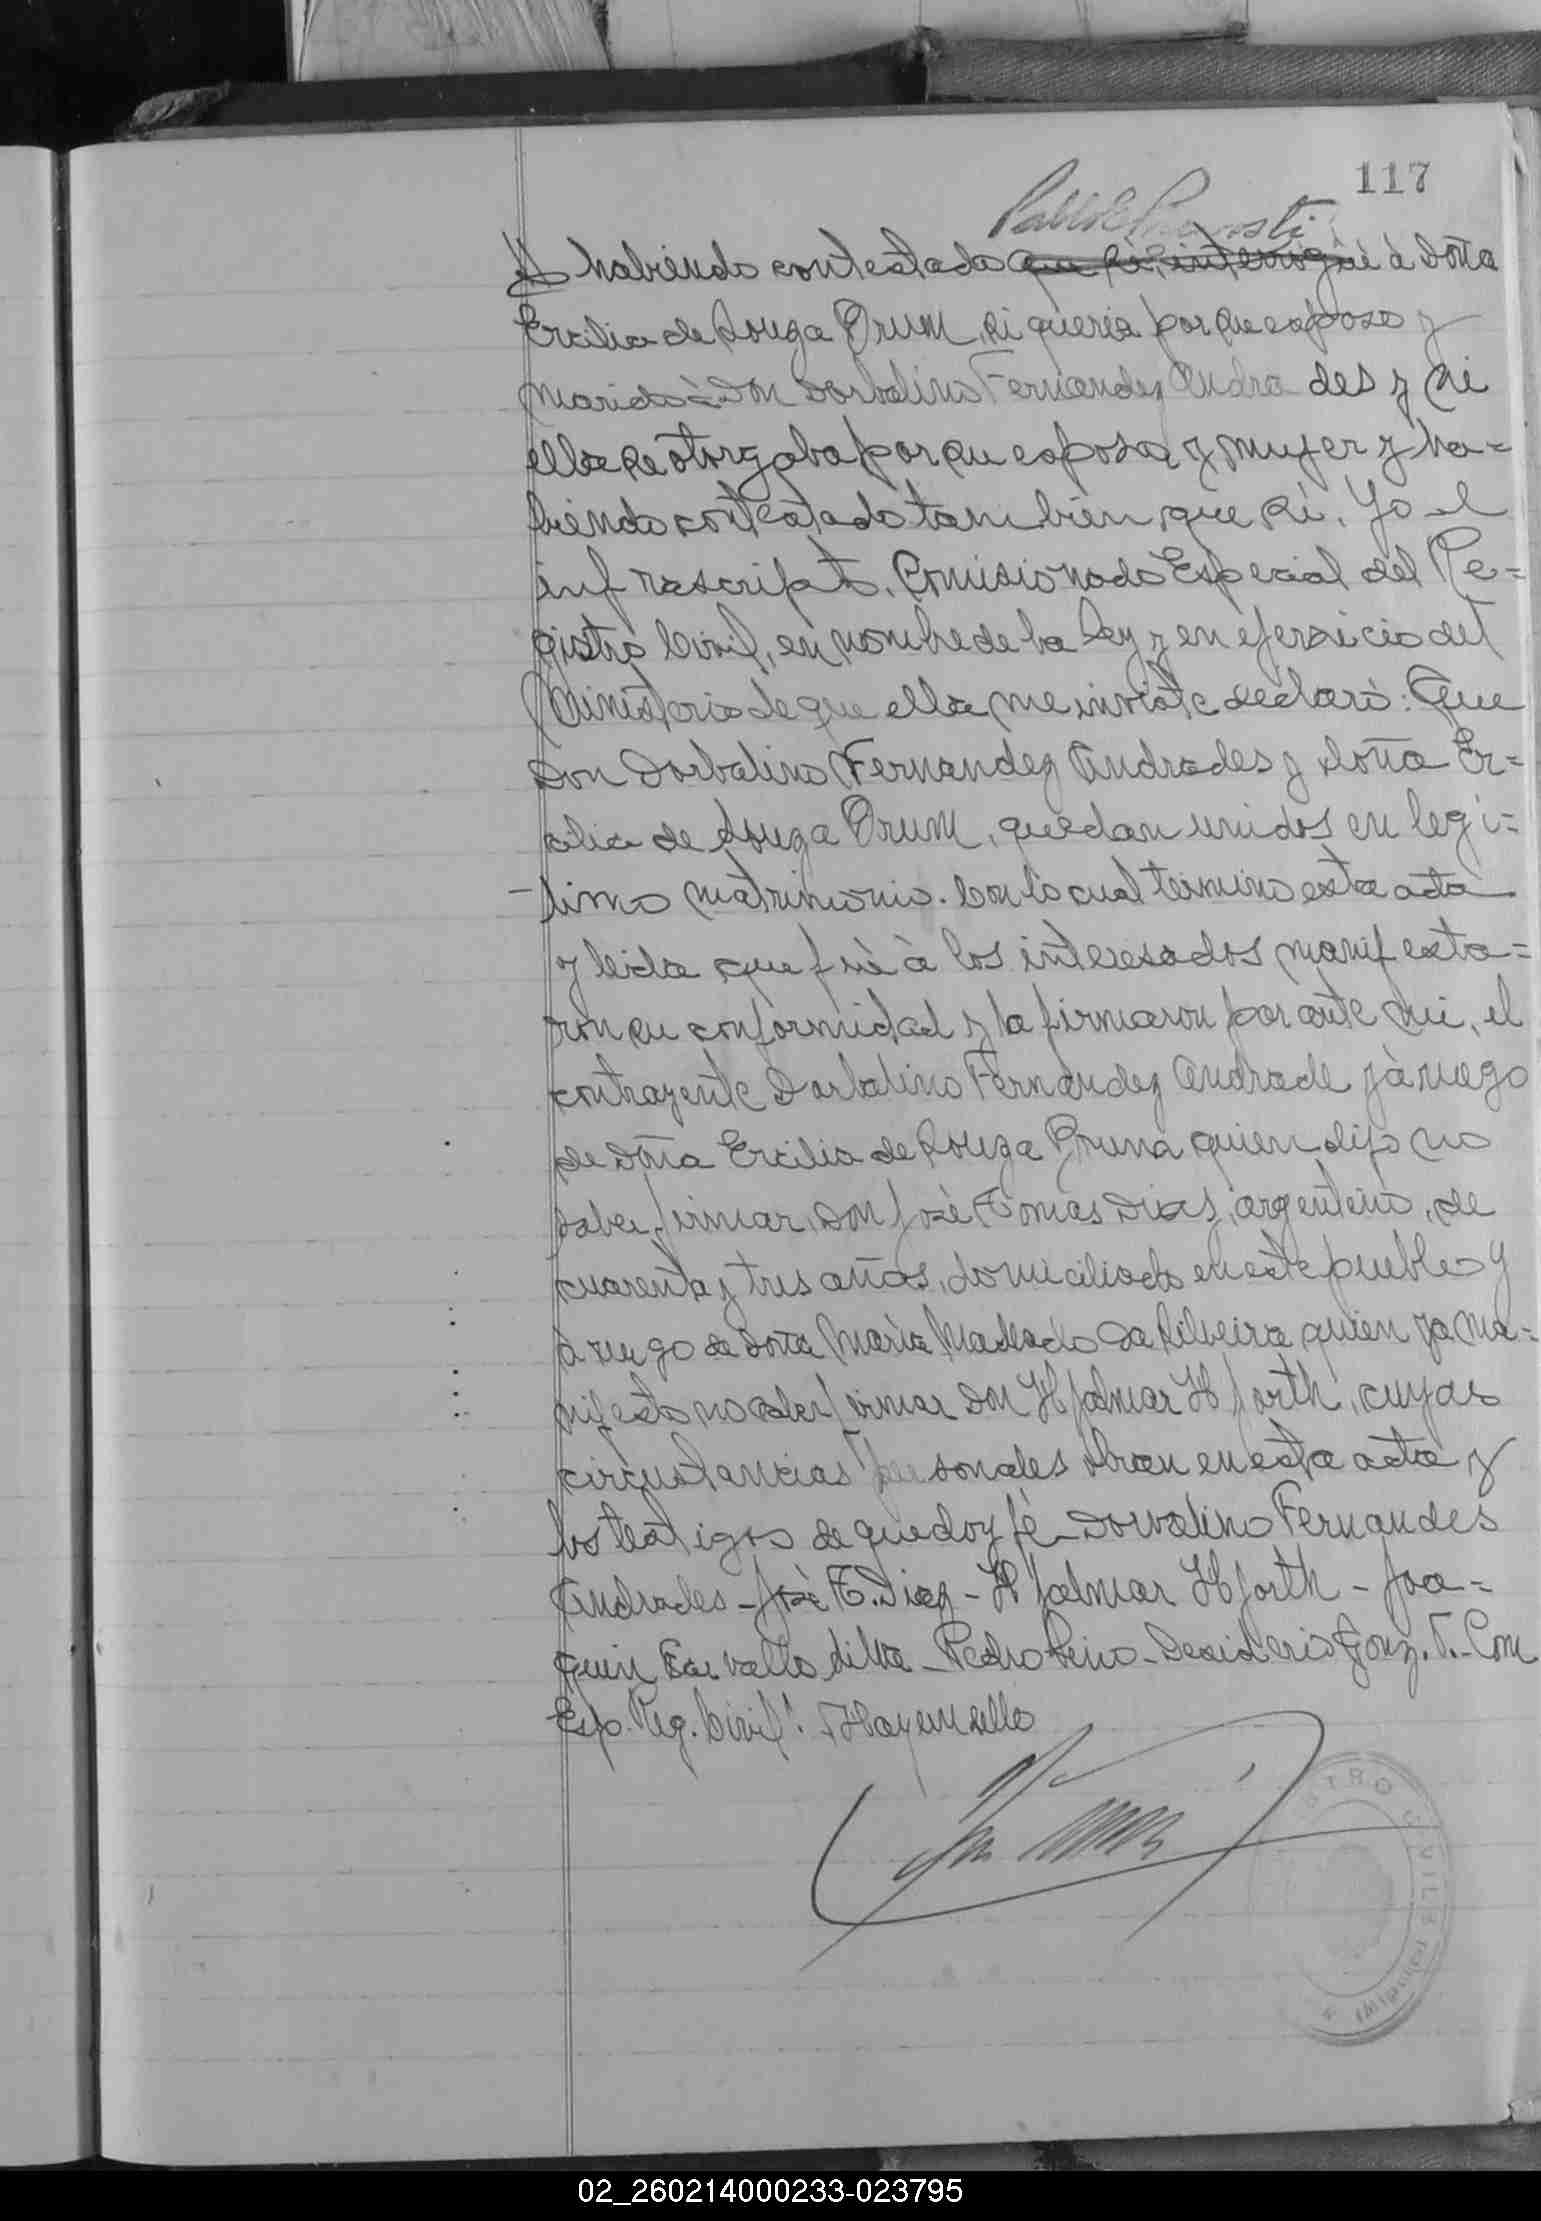 117
Y habiendo contestado que si, interrogué à Doña
Ercilia de Souza Brum, si queria por su esposo y
marido à Don Dorbalino Fernandez Andrades y si
ella se otorgaba por su esposa y mujer y ha=
biendo contestado tambien que si. Yo el
infrascripto, Comisionado Especial del Re=
gistro Civil, en nombre de la Ley y en ejersicio del
Ministerio de que ella me inviste declaro: Que
Don Dorbalino Fernandez Andrades y Doña Er=
cilia de Souza Brum, quedan unidos en legi=
timo matrimonio. Con lo cual termino esta acta
y leida que fué à los interesados manifesta=
ron su conformidad y la firmaron por ante mi, el
contrayente Dorbalino Fernandez Andrade y à ruego
de Doña Ercilia de Souza Bruna quien dijo no
saber firmar, Don José Tomas Diaz, argentino, de
cuarenta y tres años, domiciliado en este pueblo y
à ruego de Doña Maria Machado Da Silveira quien ya ma=
nifesto no saber firmar Don Hjalmar Hjorth, cuyas
circustancias personales obran en esta acta y
los testigos de que doy fé - Dorvalino Fernandes
Andrades - José T. Diaz - Hjalmar Hjorth - Joa=
quin Carvallo Silva - Pedro - Desiderio Gonz. T. - Com
Esp. Reg. Civil". Hay un sello
REGISTRO CIVIL
02_260214000233-023795